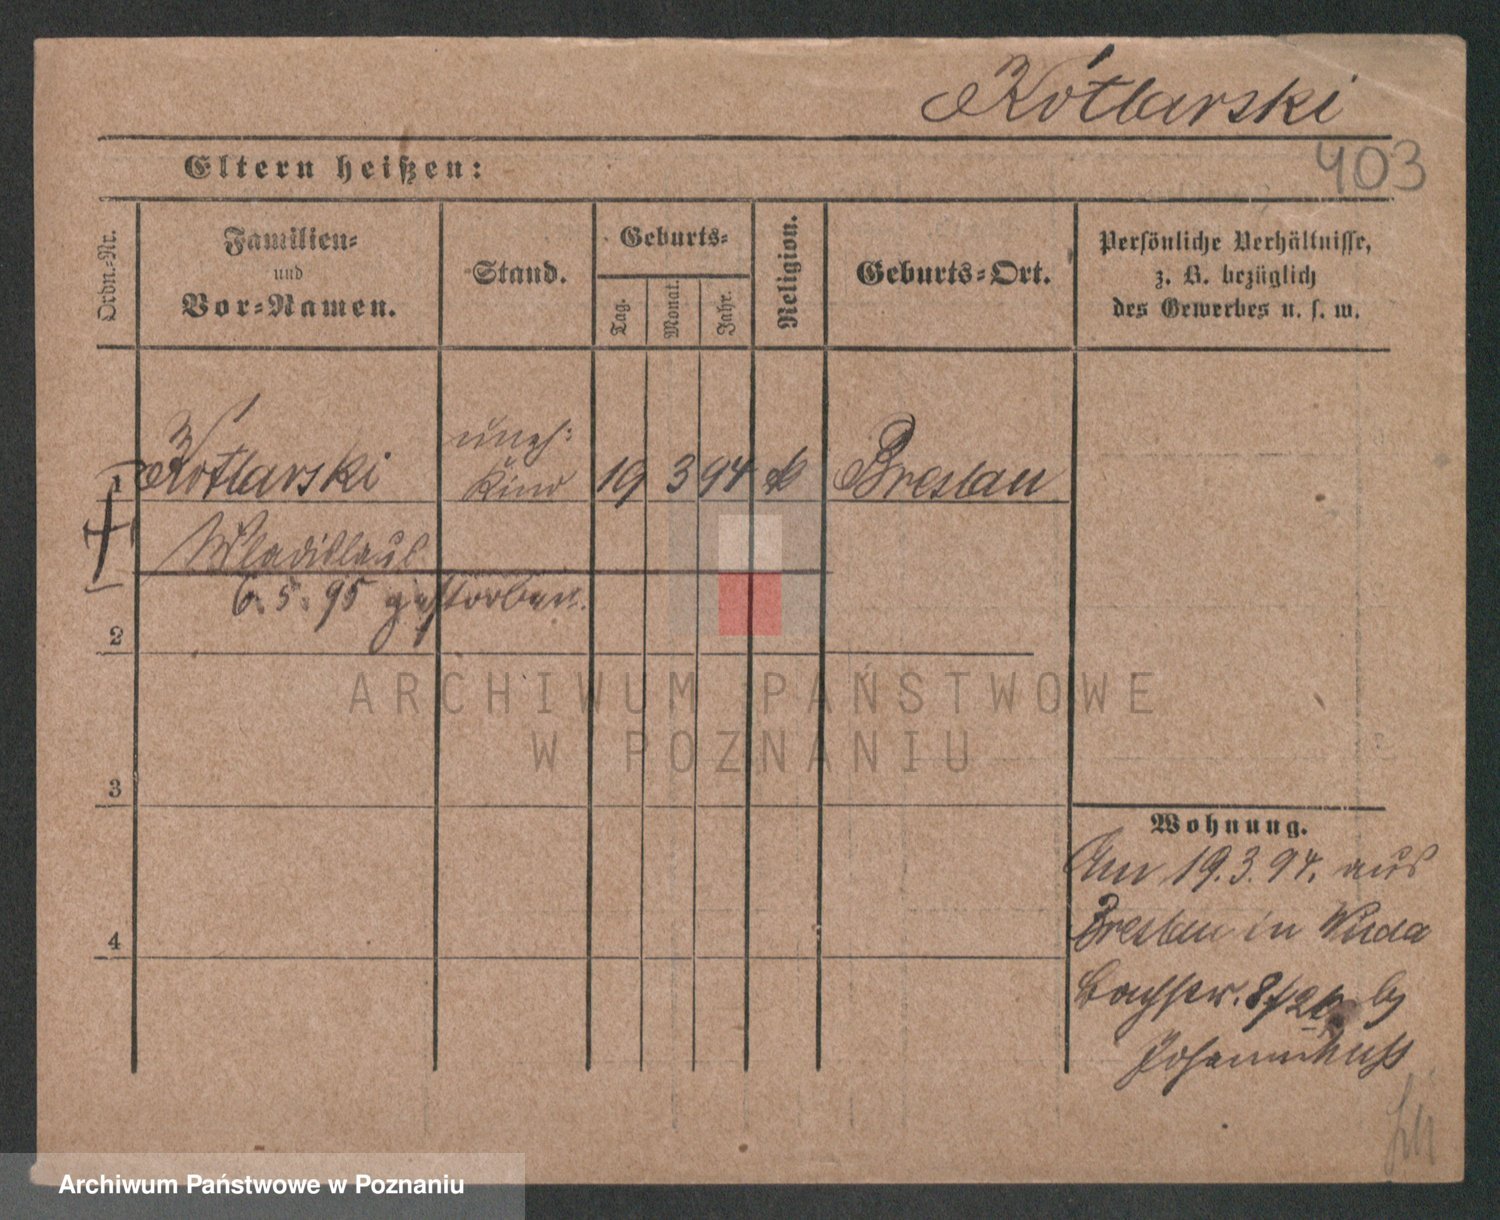 Kotlarski
403
Eltern heißen:
Ordn.-Nr.
Familien-
und
Vor-Namen.
Stand.
Geburts-
Tag.
Monat.
Jahr.
Religion.
Geburts-Ort.
Persönliche Verhältnisse,
z. B. bezüglich
des Gewerbes u. s. w.
1
Kotlarski
uneh:
Kind
19
3
94
k
Breslau
Wladislaus
6.5.95 gestorben.
2
3
4
Wohnung.
Am 19.3.94. aus
Breslau in Wilda
by
Johann
ARCHIWUM PAŃSTWOWE
W POZNANIU
Archiwum Państwowe w Poznaniu